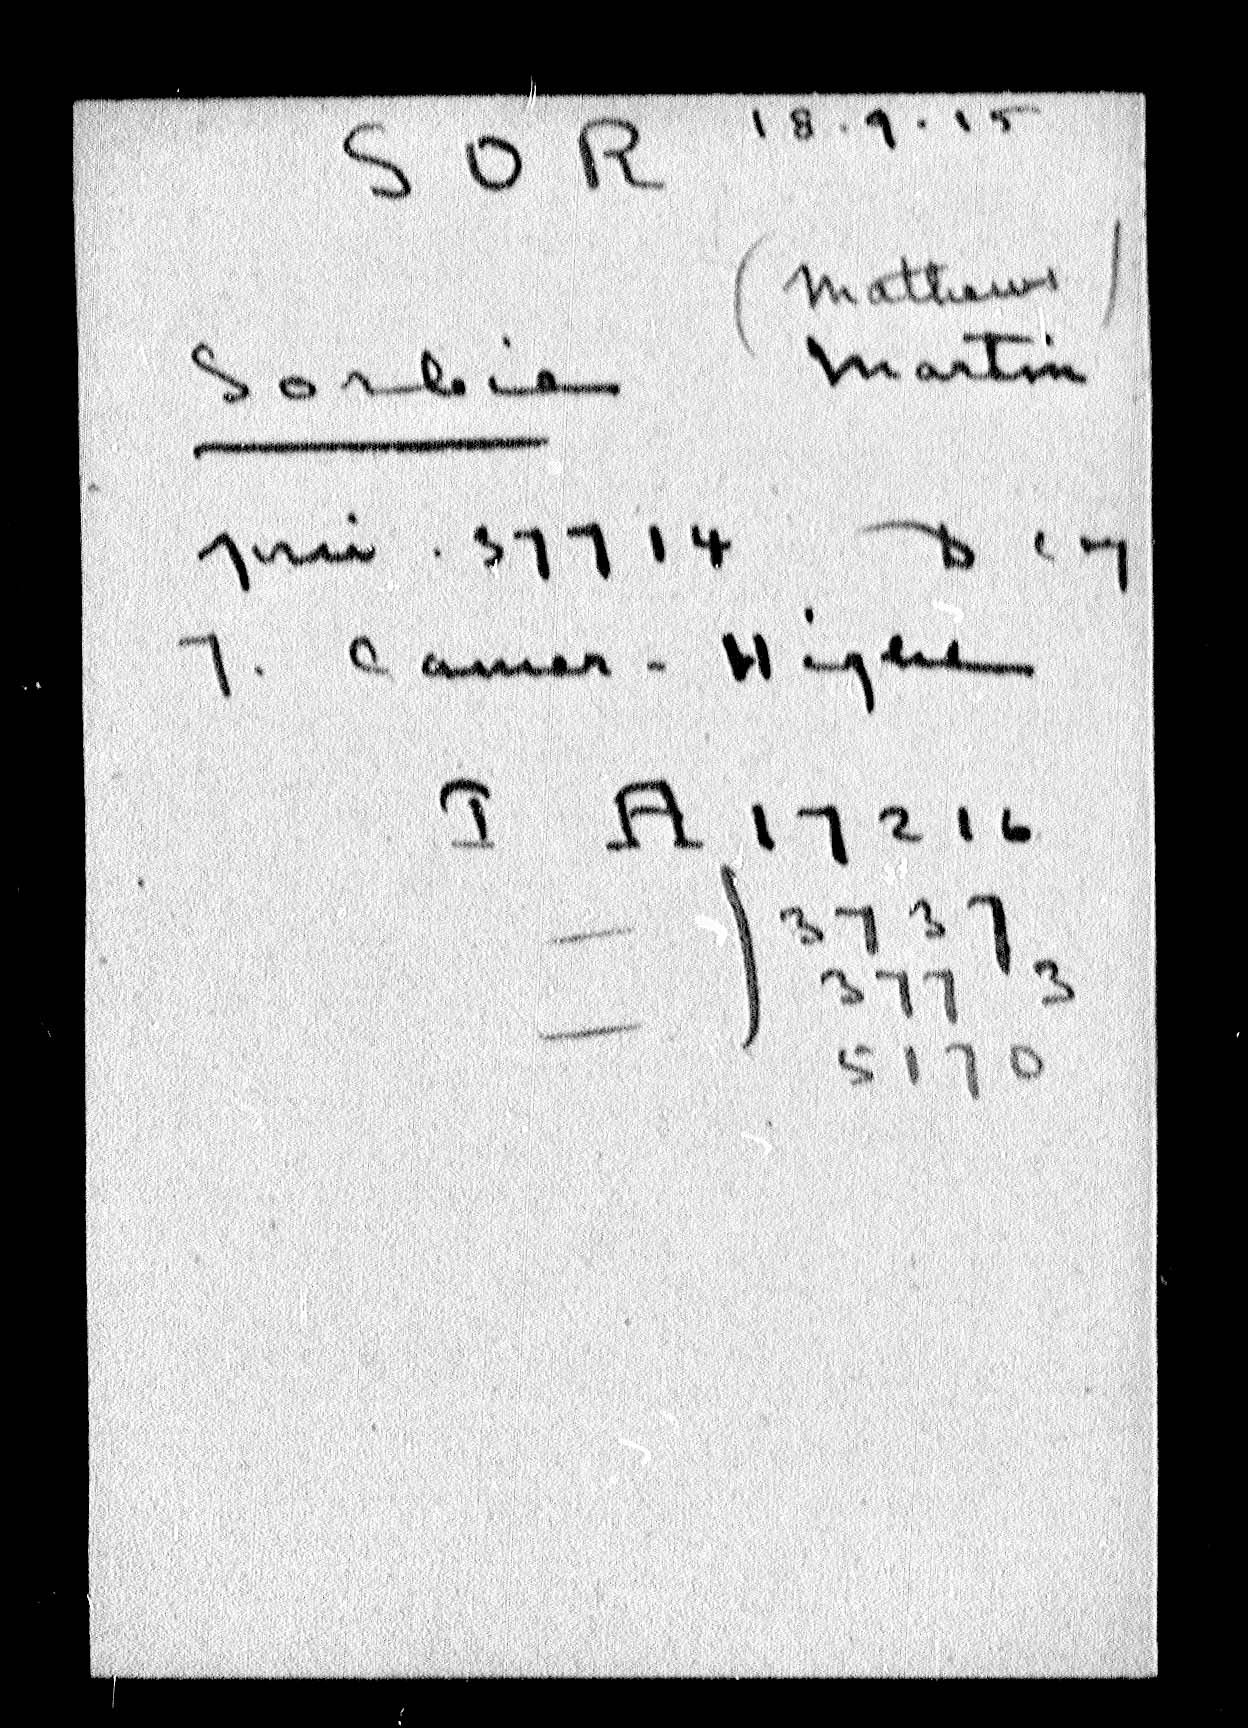 SOR 18.9.15
(Mathews)
Sorbie Martin
priv. 37714
7. Camer. Highl
I A 17216
3737
377 3
5170